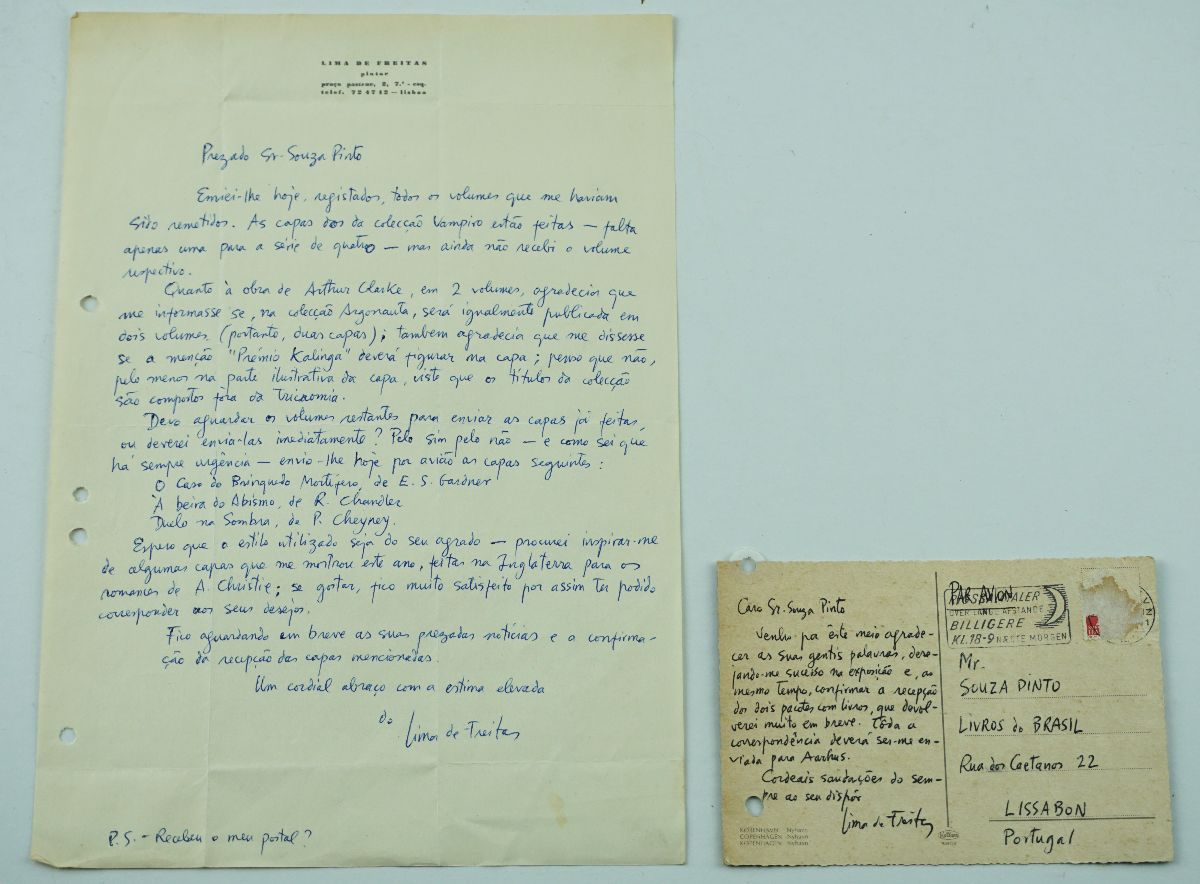 LIMA DE FREITAS
pintor
praça pasteur, 2, 7.º - esq.
telef. 72 47 12 — lisboa
Prezado Sr. Souza Pinto
Enviei-lhe hoje, registados, todos os volumes que me haviam
sido remetidos. As capas dos da colecção Vampiro estão feitas — falta
apenas uma para a série de quatro — mas ainda não recebi o volume
respectivo.
Quanto à obra de Arthur Clarke, em 2 volumes, agradecia que
me informasse se, na colecção Argonauta, será igualmente publicada em
dois volumes (portanto, duas capas); tambem agradecia que me dissesse
se a menção "Prémio Kalinga" deverá figurar na capa; penso que não,
pelo menos na parte ilustrativa da capa, visto que os títulos da colecção
são compostos fora da tricromia.
Devo aguardar os volumes restantes para enviar as capas já feitas,
ou deverei enviá-las imediatamente? Pelo sim pelo não — e como sei que
há sempre urgência — envio-lhe hoje por avião as capas seguintes:
O Caso do Brinquedo Mortífero, de E. S. Gardner
À beira do Abismo, de R. Chandler
Duelo na Sombra, de P. Cheyney.
Espero que o estilo utilizado seja do seu agrado — procurei inspirar-me
de algumas capas que me mostrou este ano, feitas na Inglaterra para os
romances de A. Christie; se gostar, fico muito satisfeito por assim ter podido
corresponder aos seus desejos.
Fico aguardando em breve as suas prezadas notícias e a confirma-
ção da recepção das capas mencionadas.
Um cordial abraço com a estima elevada
do
Lima de Freitas
P.S. - Recebeu o meu postal?
Caro Sr. Souza Pinto
Venho por êste meio agrade-
cer as suas gentis palavras, dese-
jando-me sucesso na exposição e, ao
mesmo tempo, confirmar a recepção
dos dois pacotes com livros, que devol-
verei muito em breve. Tôda a
correspondência deverá ser-me en-
viada para Aarhus.
Cordeais saudações do sem-
pre ao seu dispôr
Lima de Freitas
KØBENHAVN Nyhavn
COPENHAGEN Nyhavn
KOPENHAGEN Nyhavn
PAR AVION
OVER LANGE AFSTANDE
BILLIGERE
KL. 18-9 NÆSTE MORGEN
Mr.
SOUZA PINTO
LIVROS do BRASIL
Rua dos Caetanos 22
LISSABON
Portugal